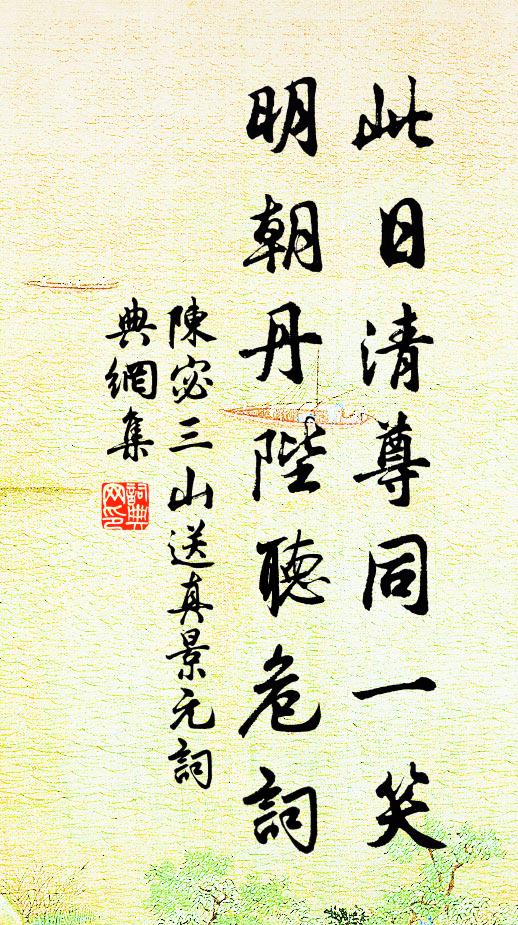 此日清尊同一笑
明朝丹陛聽危詞
陳宓三山送真景元詞
典網集
詞典網印